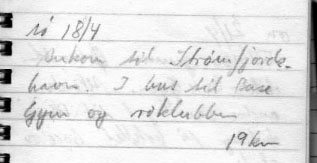 sö 18/4
Ankom till Strömfjords-
havn I bus til Base
Gym og roklubben
19 km